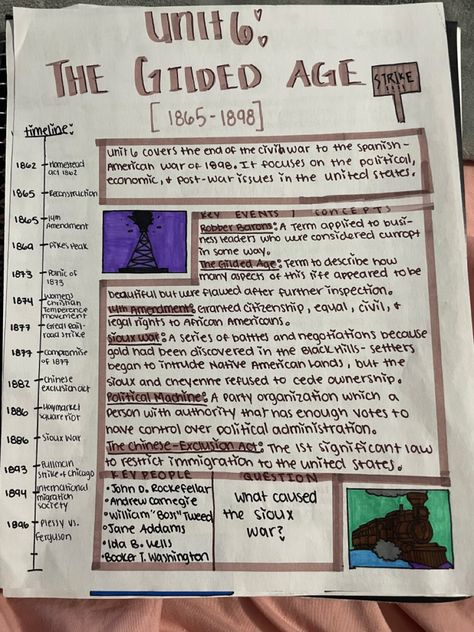 Unit 6:
The Gilded Age
[1865-1898]
STRIKE
timeline:
1862 Homestead act 1862
1865 Reconstruction
1865 14th Amendment
1869 Pikes Peak
1873 Panic of 1873
1874 Women's Christian Temperence movement
1877 Great Rail-road strike
1877 compromise of 1877
1882 Chinese exclusion act
1886 Haymarket square riot
1886 Sioux War
1893 Pullman strike of Chicago
1894 international migration society
1896 Plessy vs. Ferguson
Unit 6 covers the end of the civil war to the Spanish-
American war of 1898. It focuses on the political,
economic, & post-war issues in the united states.
Key Events / Concepts
Robber Barons: A Term applied to busi-
ness leaders who were considered currupt
in some way.
The Gilded Age: Term to describe how
many aspects of this life appeared to be
beautiful but were flawed after further inspection.
14th Amendment: Granted citizenship, equal, civil, &
legal rights to African Americans.
Sioux War: A series of battles and negotiations because
gold had been discovered in the Black Hills- settlers
began to intrude Native American Lands, but the
sioux and cheyenne refused to cede ownership.
Political Machine: A party organization which a
person with authority that has enough votes to
have control over political administration.
The Chinese-Exclusion Act: The 1st significant law
to restrict immigration to the united states.
Key People
• John D. Rockefellar
• Andrew Carnegie
• William "Boss" Tweed
• Jane Addams
• Ida B. Wells
• Booker T. Washington
Question
What caused
the sioux
war?